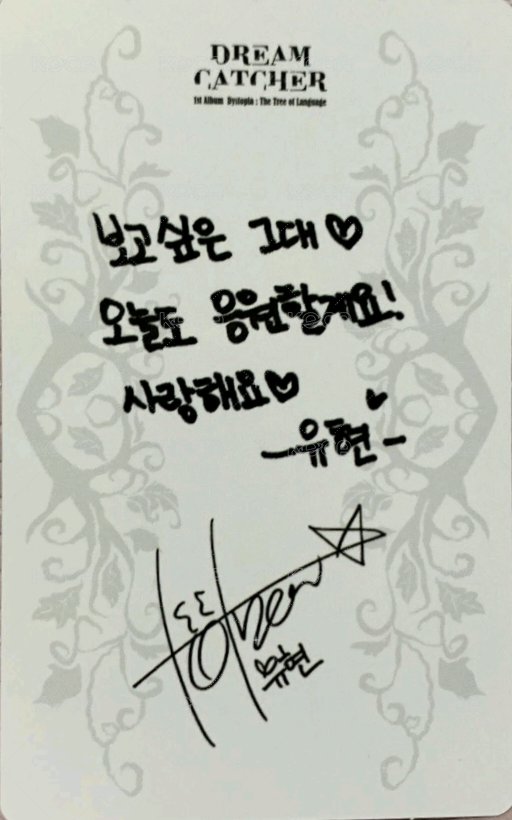 DREAM
CATCHER
1st Album Dystopia : The Tree of Language
보고싶은 그대♡
오늘도 응원할게요!
사랑해요♡
-유현-
유현